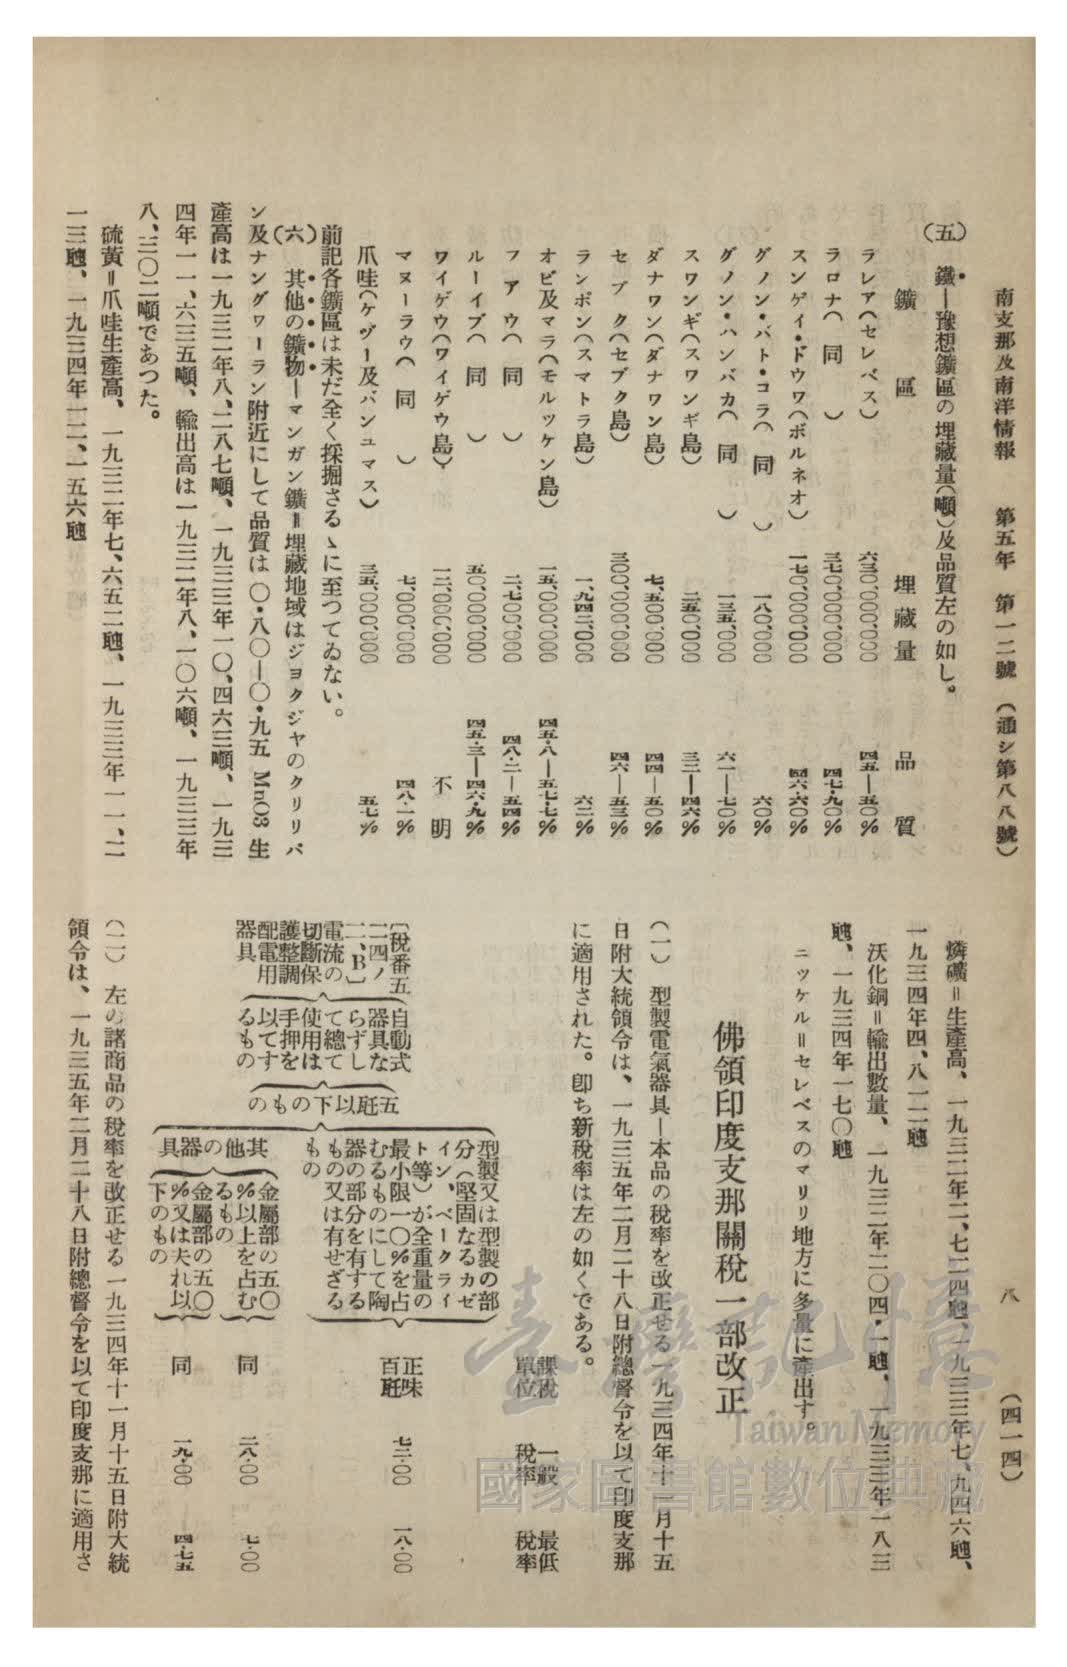 南支那及南洋情報　第五年　第一二號　(通シ第八八號)
八　(四一四)
(五)　鐵―豫想鑛區の埋藏量(噸)及品質左の如し。
鑛區　埋藏量　品質
ラレア(セレベス)　六三〇、〇〇〇、〇〇〇　四五―五〇%
ラロナ(同)　三七〇、〇〇〇、〇〇〇　四七・九〇%
スンゲイ・ドウワ(ボルネオ)　一七〇、〇〇〇、〇〇〇　四六・六〇%
グノン・バト・コラ(同)　一八〇、〇〇〇　六〇%
グノン・ハンバカ(同)　一三五、〇〇〇　六一―七〇%
スワンギ(スワンギ島)　二五〇、〇〇〇　三二―四六%
ダナワン(ダナワン島)　七、五〇〇、〇〇〇　四四―五〇%
セブク(セブク島)　三〇〇、〇〇〇、〇〇〇　四六―五三%
ランポン(スマトラ島)　一、九四二、〇〇〇　六二%
オビ及マラ(モルッケン島)　一五、〇〇〇、〇〇〇　四五・八―五七・七%
フアウ(同)　二七〇、〇〇〇　四八・二―五四%
ルーイブ(同)　五〇、〇〇〇、〇〇〇　四五・三―四六・九%
ワイゲウ(ワイゲウ島)　一二、〇〇〇、〇〇〇　不明
マヌーラウ(同)　七、〇〇〇、〇〇〇　四八・一%
爪哇(ケヅー及バンユマス)　三五、〇〇〇、〇〇〇　五七%
前記各鑛區は未だ全く採掘さるゝに至つてゐない。
(六)　其他の鑛物―マンガン鑛＝埋藏地域はジョクジヤのクリリパ
ン及ナングワーラン附近にして品質は〇・八〇―〇・九五 MnO3 生
產高は一九三二年八、二八七噸、一九三三年一〇、四六三噸、一九三
四年一一、六三五噸、輸出高は一九三二年八、一〇六噸、一九三三年
八、三〇二噸であつた。
硫黄＝爪哇生產高、一九三二年七、六五二瓲、一九三三年一一、二
一三瓲、一九三四年一二、一五六瓲
燐礦＝生產高、一九三二年二、七二四瓲、一九三三年七、九四六瓲、
一九三四年四、八一二瓲
沃化銅＝輸出數量、一九三二年二〇四・一瓲、一九三三年一八三
瓲、一九三四年一七〇瓲
ニッケル＝セレベスのマリリ地方に多量に產出す。
佛領印度支那關稅一部改正
(一)　型製電氣器具―本品の稅率を改正せる一九三四年十一月十五
日附大統領令は、一九三五年二月二十八日附總督令を以て印度支那
に適用された。卽ち新稅率は左の如くである。
課稅單位　一般稅率　最低稅率
〔稅番五二四ノ二、B〕電流の切斷保護整調配電用器具
自動式器具ならずして總て使用は手押を以てするもの
五瓩以下のもの
型製又は型製の部分(堅固なるカゼイン、ベークライト等)が全重量の最小限一〇%を占むるものにして陶器の部分を有するもの又は有せざるもの　正味百瓩　七二・〇〇　一八・〇〇
其他の器具
金屬部の五〇%以上を占むるもの　同　二八・〇〇　七・〇〇
金屬部の五〇%又は夫れ以下のもの　同　一九・〇〇　四・七五
(二)　左の諸商品の稅率を改正せる一九三四年十一月十五日附大統
領令は、一九三五年二月二十八日附總督令を以て印度支那に適用さ
臺灣記憶
Taiwan Memory
國家圖書館數位典藏